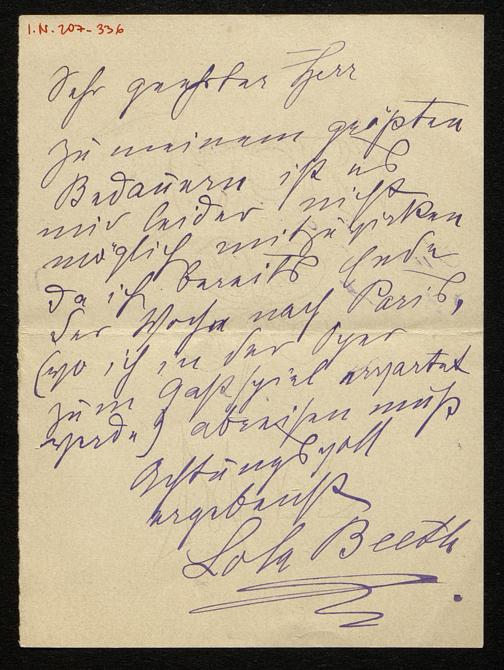 I.N. 207-336
Sehr geehrter Herr
zu meinem größten
Bedauern ist es
mir leider nicht
möglich mitzuwirken
da ich bereits Ende
der Woche nach Paris,
(wo ich in der Oper
zum Gastspiel erwartet
werde) abreisen muß
Achtungsvoll
ergebenst
Lola Beeth